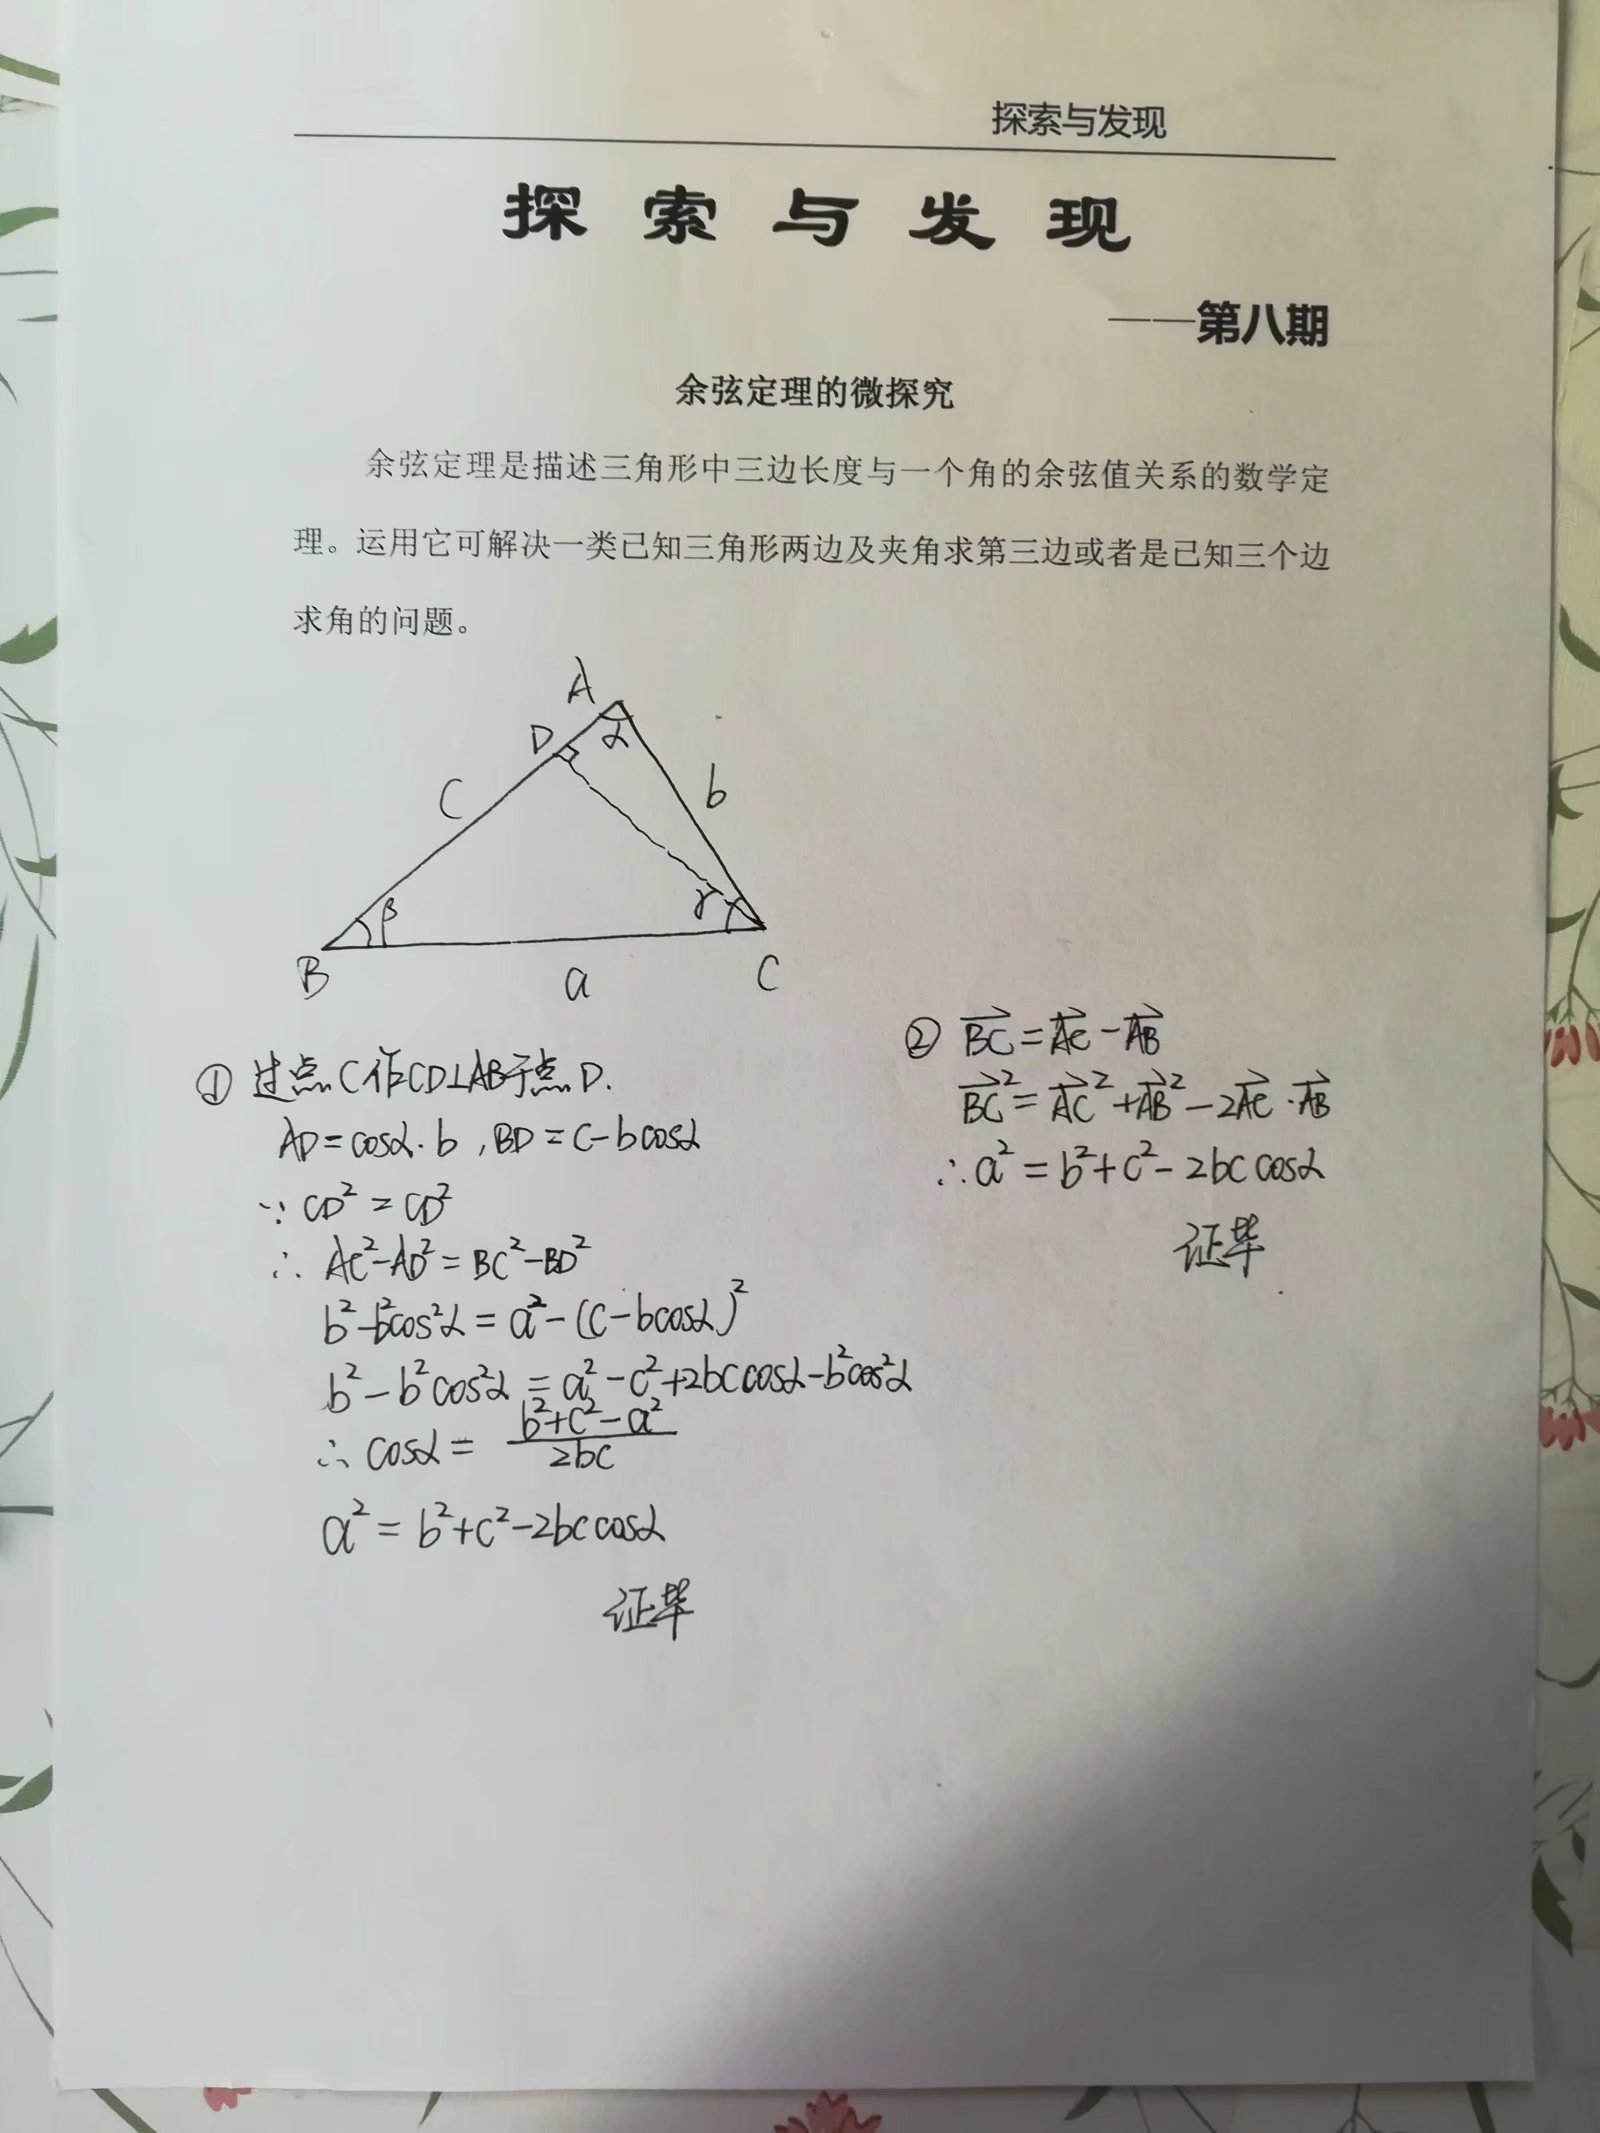 探索与发现
探 索 与 发 现
——第八期
余弦定理的微探究
余弦定理是描述三角形中三边长度与一个角的余弦值关系的数学定
理。运用它可解决一类已知三角形两边及夹角求第三边或者是已知三个边
求角的问题。
A
D
α
C
b
β
γ
B
a
C
① 过点C作CD⊥AB于点D.
AD=cosα·b,BD=c-bcosα
∵ CD²=CD²
∴ AC²-AD²=BC²-BD²
b²-b²cos²α=a²-(c-bcosα)²
b²-b²cos²α=a²-c²+2bccosα-b²cos²α
∴ cosα= (b²+c²-a²)/2bc
a²=b²+c²-2bccosα
证毕
② \overrightarrow{BC}=\overrightarrow{AC}-\overrightarrow{AB}
\overrightarrow{BC}²=\overrightarrow{AC}²+\overrightarrow{AB}²-2\overrightarrow{AC}·\overrightarrow{AB}
∴a²=b²+c²-2bccosα
证毕